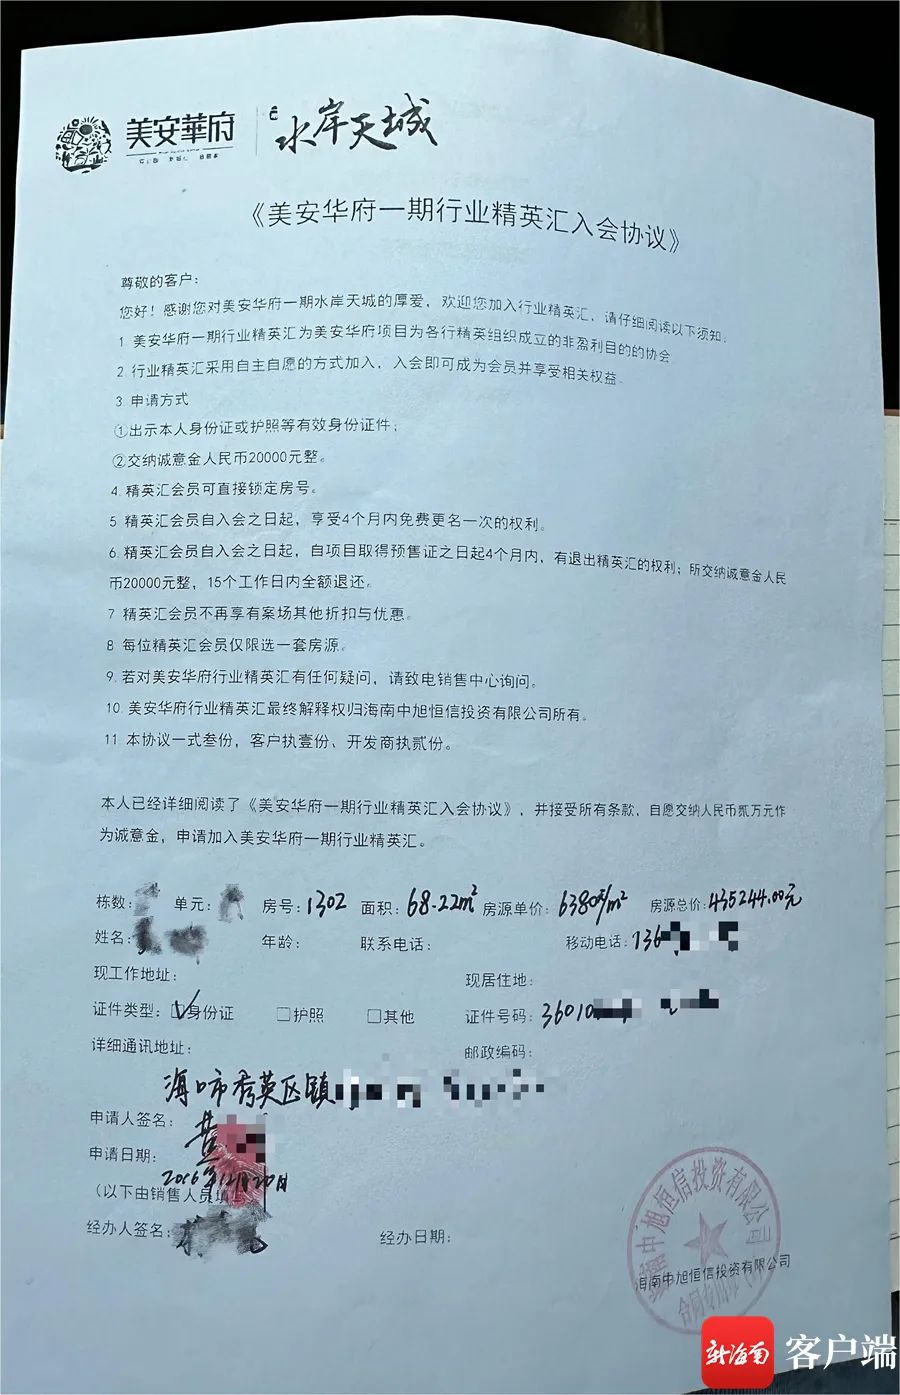 美安華府
水岸天城
《美安华府一期行业精英汇入会协议》
尊敬的客户：
您好！感谢您对美安华府一期水岸天城的厚爱，欢迎您加入行业精英汇，请仔细阅读以下须知：
1 美安华府一期行业精英汇为美安华府项目为各行精英组织成立的非盈利目的的协会
2 行业精英汇采用自主自愿的方式加入，入会即可成为会员并享受相关权益。
3 申请方式
①出示本人身份证或护照等有效身份证件；
②交纳诚意金人民币20000元整。
4 精英汇会员可直接锁定房号。
5 精英汇会员自入会之日起，享受4个月内免费更名一次的权利。
6. 精英汇会员自入会之日起，自项目取得预售证之日起4个月内，有退出精英汇的权利；所交纳诚意金人民
币20000元整，15个工作日内全额退还。
7 精英汇会员不再享有案场其他折扣与优惠。
8 每位精英汇会员仅限选一套房源。
9. 若对美安华府行业精英汇有任何疑问，请致电销售中心询问。
10. 美安华府行业精英汇最终解释权归海南中旭恒信投资有限公司所有。
11 本协议一式叁份，客户执壹份、开发商执贰份。
本人已经详细阅读了《美安华府一期行业精英汇入会协议》，并接受所有条款，自愿交纳人民币贰万元作
为诚意金，申请加入美安华府一期行业精英汇。
栋数： 单元： 房号：1302 面积：68.22m² 房源单价：6380元/m² 房源总价：435244.00元
姓名： 年龄： 联系电话： 移动电话：136
现工作地址： 现居住地：
证件类型：☑身份证 □护照 □其他 证件号码：36010
详细通讯地址： 邮政编码：
海口市秀英区镇
申请人签名：黄
申请日期：
2016年12月20日
（以下由销售人员填
经办人签名： 经办日期：
海南中旭恒信投资有限公司
海南中旭恒信投资有限公司
合同专用章
新海南 客户端